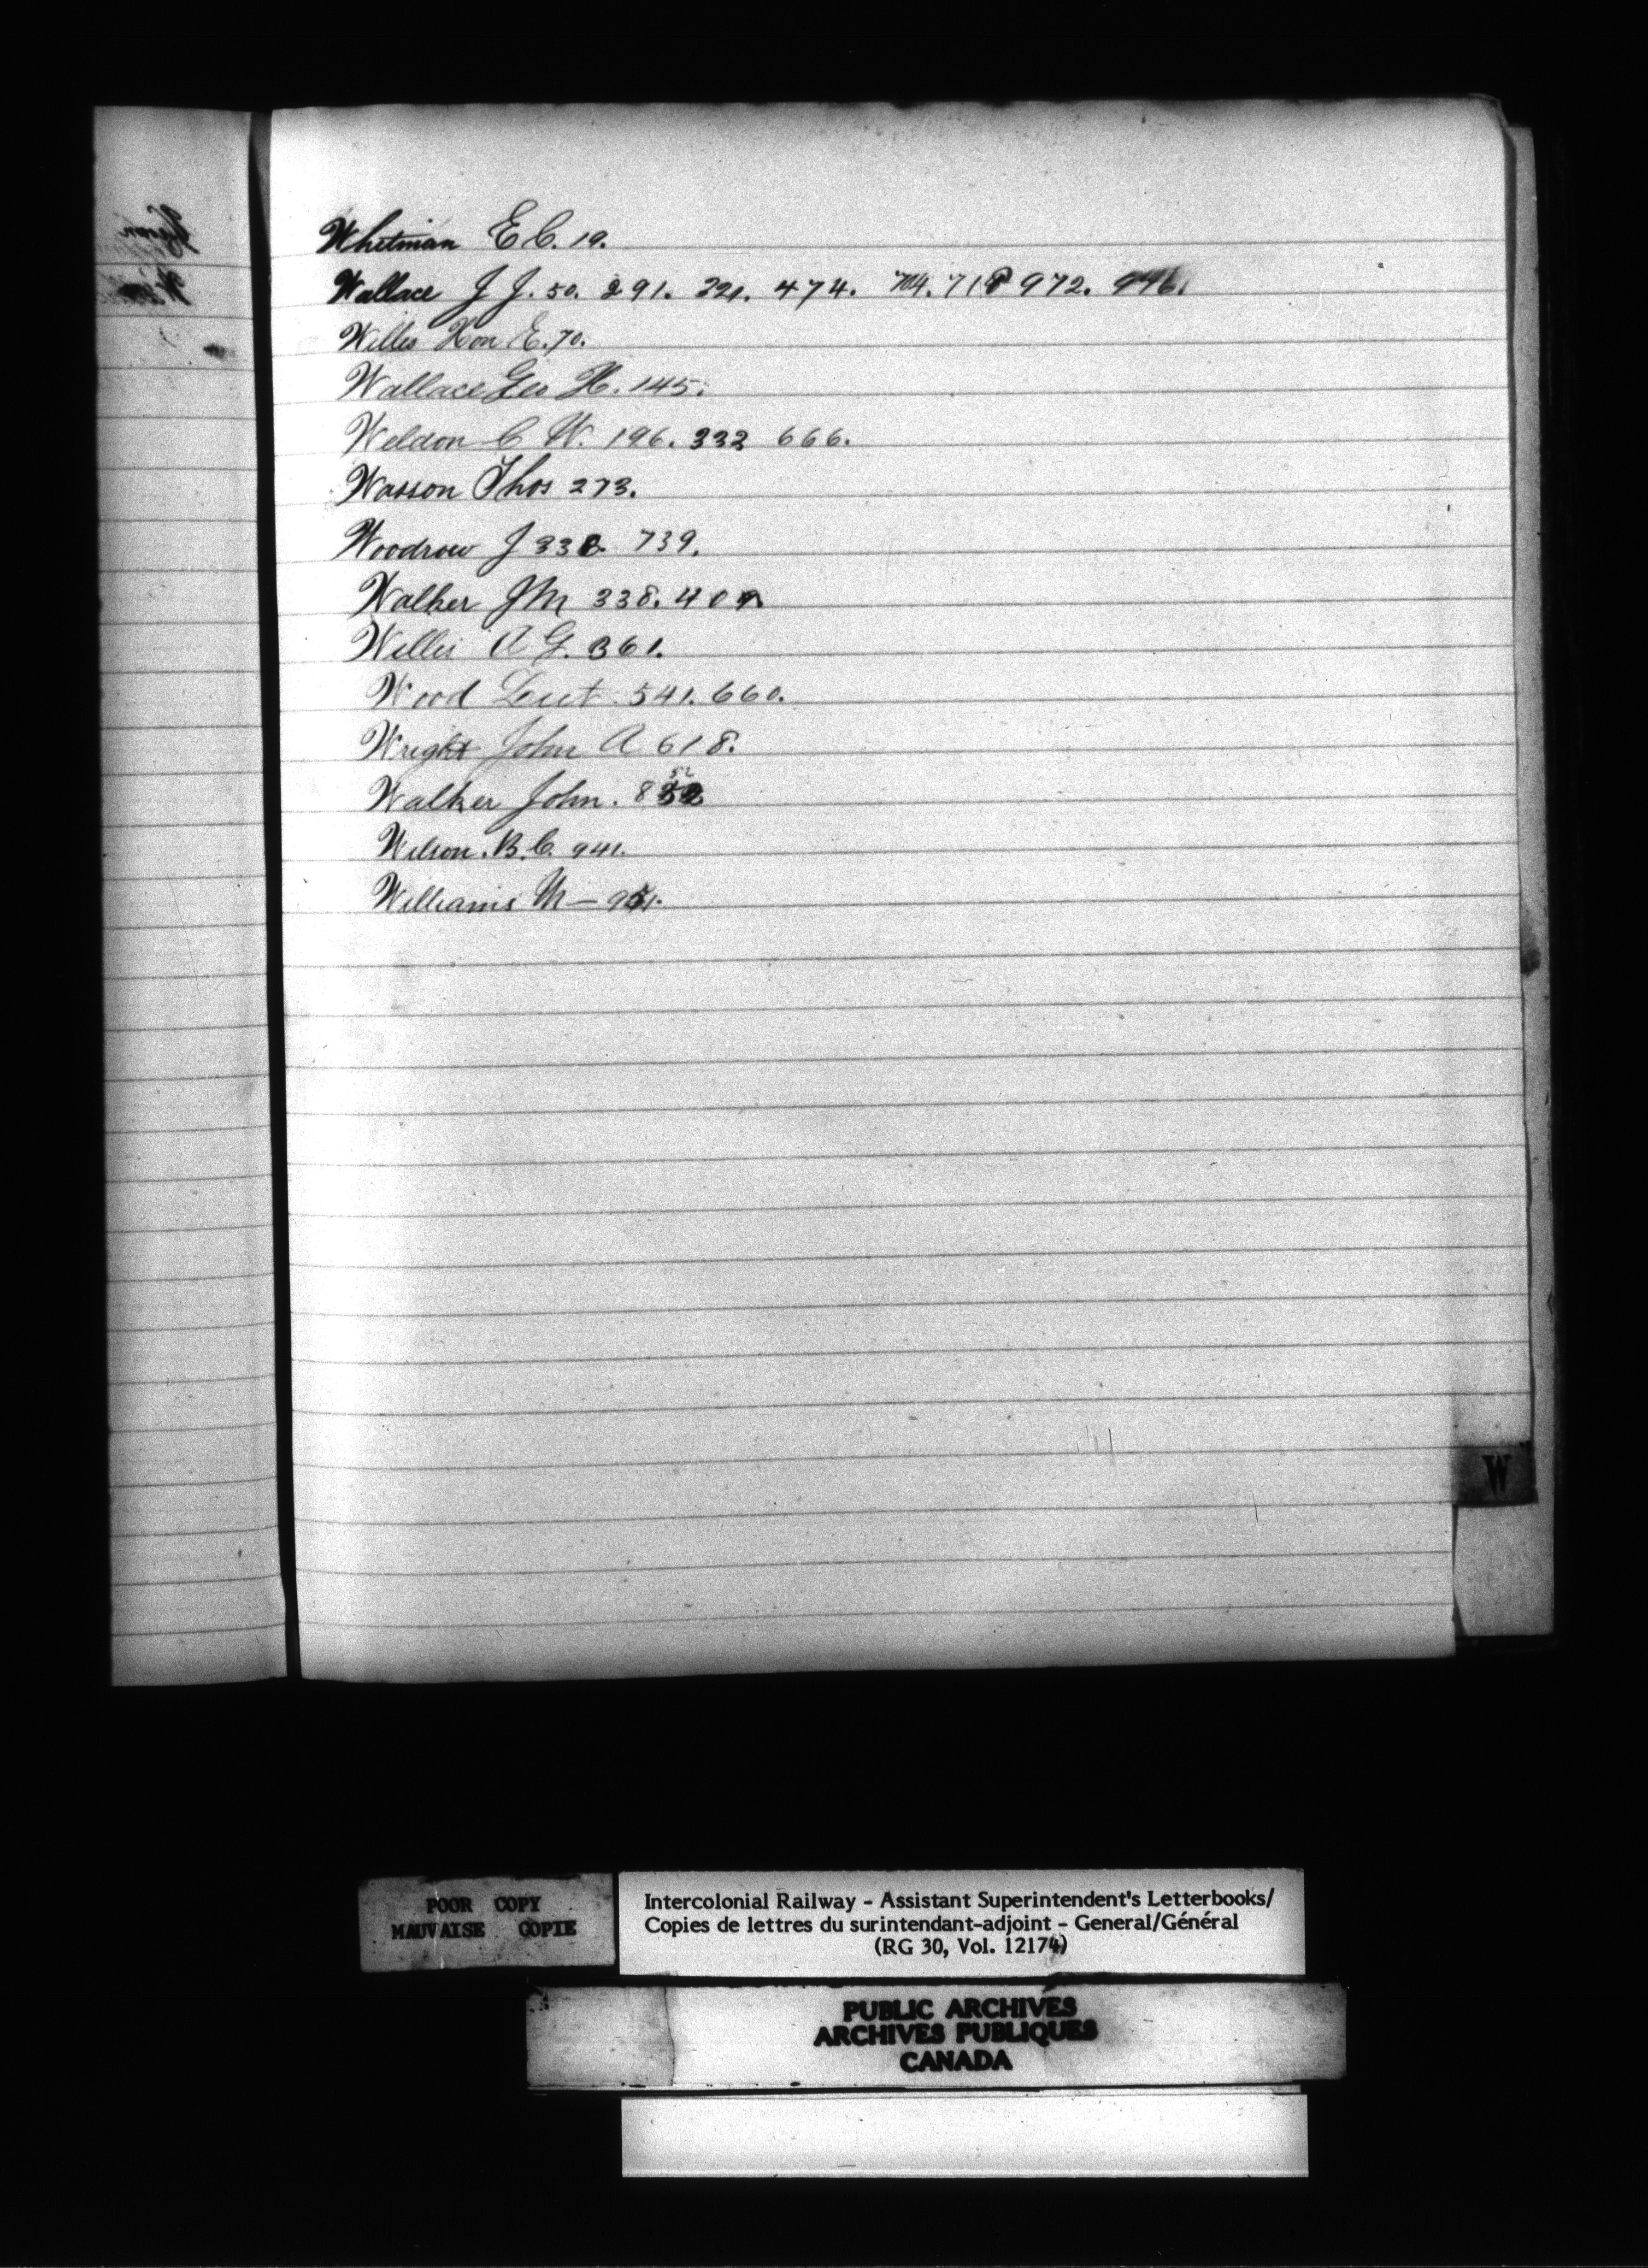 Whitman E C. 19.
Wallace J J. 50. 291. 321. 474. 704. 718 972. 946.
Willis Hon E. 70.
Wallace Geo H. 145.
Weldon C W. 196. 332 666.
Wasson Thos 273.
Woodrow J 739.
Walker J M 338.
Willis A G. 361.
Wood Leut. 541. 660.
Wright John A 618.
Walker John.
Wilson. B. C. 941.
Williams M —
W
POOR COPY
MAUVAISE COPIE
Intercolonial Railway - Assistant Superintendent's Letterbooks/
Copies de lettres du surintendant-adjoint - General/Général
(RG 30, Vol. 12174)
PUBLIC ARCHIVES
ARCHIVES PUBLIQUES
CANADA